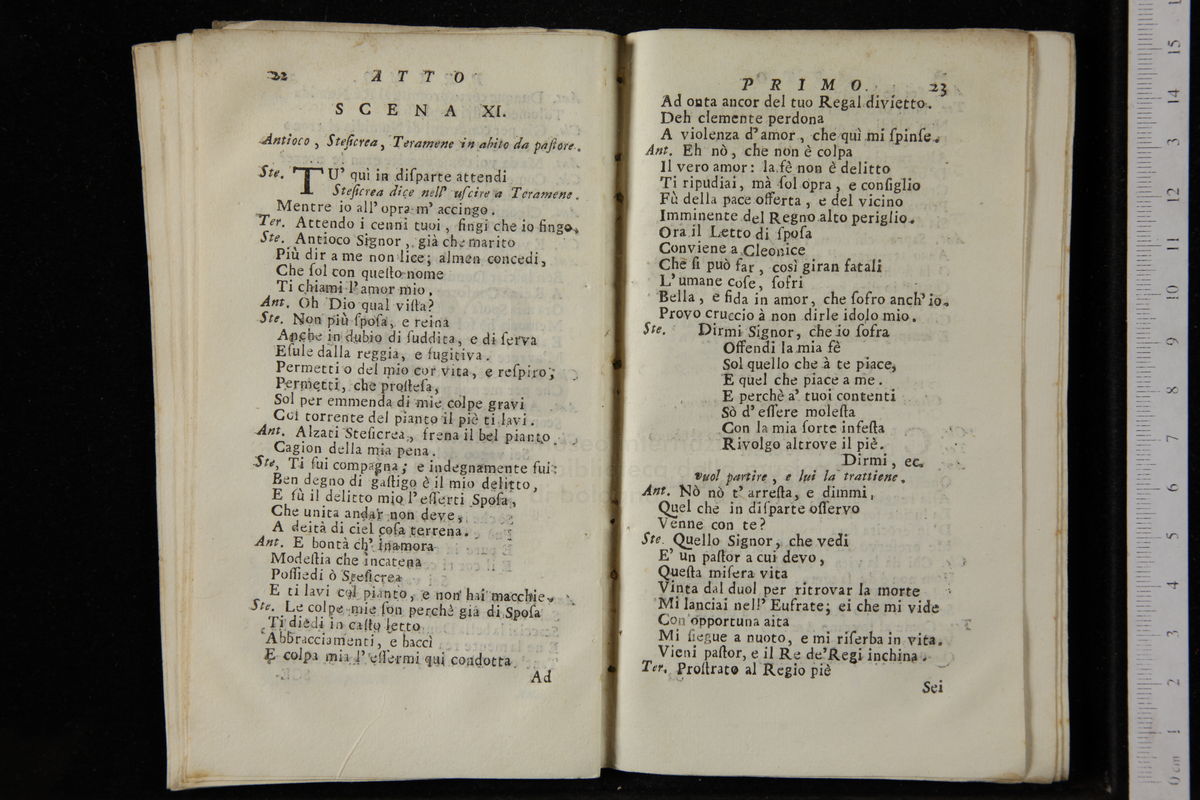 22 ATTO
SCENA XI.
Antioco, Steſicrea, Teramene in abito da paſtore.
Ste. TU' quì in diſparte attendi
Steſicrea dice nell' uſcire a Teramene.
Mentre io all' opra m' accingo.
Ter. Attendo i cenni tuoi, fingi che io fingo.
Ste. Antioco Signor, già che marito
Più dir a me non lice; almen concedi,
Che ſol con queſto nome
Ti chiami l'amor mio.
Ant. Oh Dio qual viſta?
Ste. Non più ſpoſa, e reina
Anche in dubio di ſuddita, e di ſerva
Eſule dalla reggia, e fugitiva.
Permetti o del mio cor vita, e reſpiro;
Permetti, che proſteſa,
Sol per emmenda di mie colpe gravi
Col torrente del pianto il piè ti lavi.
Ant. Alzati Steſicrea, frena il bel pianto
Cagion della mia pena.
Ste, Ti fui compagna; e indegnamente fui:
Ben degno di gaſtigo è il mio delitto,
E fù il delitto mio l'eſſerti Spoſa,
Che unita andar non deve,
A deità di ciel coſa terrena.
Ant. E bontà ch' inamora
Modeſtia che incatena
Poſſiedi ò Steſicrea
E ti lavi col pianto, e non hai macchie.
Ste. Le colpe mie ſon perchè già di Spoſa
Ti diedi in caſto letto
Abbracciamenti, e bacci
E colpa mia l' eſſermi qui condotta
Ad
PRIMO. 23
Ad onta ancor del tuo Regal divietto.
Deh clemente perdona
A violenza d'amor, che quì mi ſpinſe.
Ant. Eh nò, che non è colpa
Il vero amor: la fè non è delitto
Ti ripudiai, mà ſol opra, e conſiglio
Fù della pace offerta, e del vicino
Imminente del Regno alto periglio.
Ora il Letto di ſpoſa
Conviene a Cleonice
Che ſi può far, così giran fatali
L'umane coſe, ſofri
Bella, e fida in amor, che ſofro anch'io.
Provo cruccio à non dirle idolo mio.
Ste. Dirmi Signor, che io ſofra
Offendi la mia fè
Sol quello che à te piace,
E quel che piace a me.
E perchè a' tuoi contenti
Sò d'eſſere moleſta
Con la mia ſorte infeſta
Rivolgo altrove il piè.
Dirmi, ec.
vuol partire, e lui la trattiene.
Ant. Nò nò t'arreſta, e dimmi,
Quel che in diſparte oſſervo
Venne con te?
Ste. Quello Signor, che vedi
E' un paſtor a cui devo,
Queſta miſera vita
Vinta dal duol per ritrovar la morte
Mi lanciai nell' Eufrate; ei che mi vide
Con opportuna aita
Mi ſiegue a nuoto, e mi riſerba in vita.
Vieni paſtor, e il Re de'Regi inchina.
Ter. Proſtrato al Regio piè
Sei